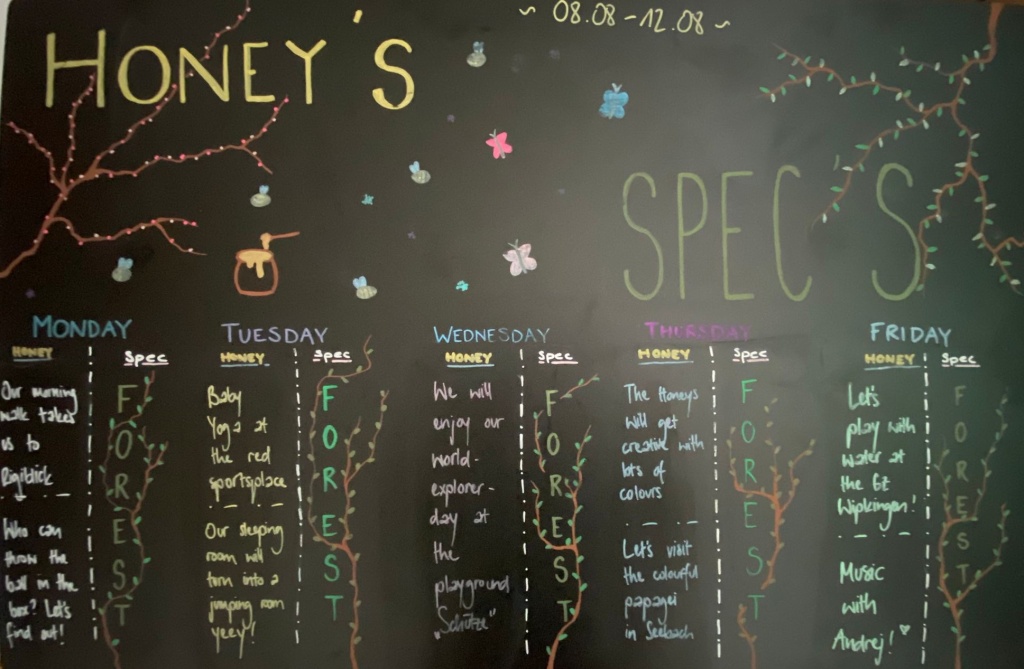 ~ 08.08 - 12.08 ~
HONEY'S
SPEC'S
MONDAY
HONEY
Our morning
walk takes
us to
Rigiblick
Who can
throw the
ball in the
box? Let's
find out!
Spec
FOREST
TUESDAY
HONEY
Baby
Yoga at
the red
sportsplace
Our sleeping
room will
turn into a
jumping room
yeey!
Spec
FOREST
WEDNESDAY
HONEY
We will
enjoy our
world-
explorer-
day at
the
playground
„Schütze"
Spec
FOREST
THURSDAY
HONEY
The Honeys
will get
creative with
lots of
colours
Let's visit
the colourful
papagei
in Seebach
Spec
FOREST
FRIDAY
HONEY
Let's
play with
water at
the GZ
Wipkingen!
Music
with
Andrej!
Spec
FOREST